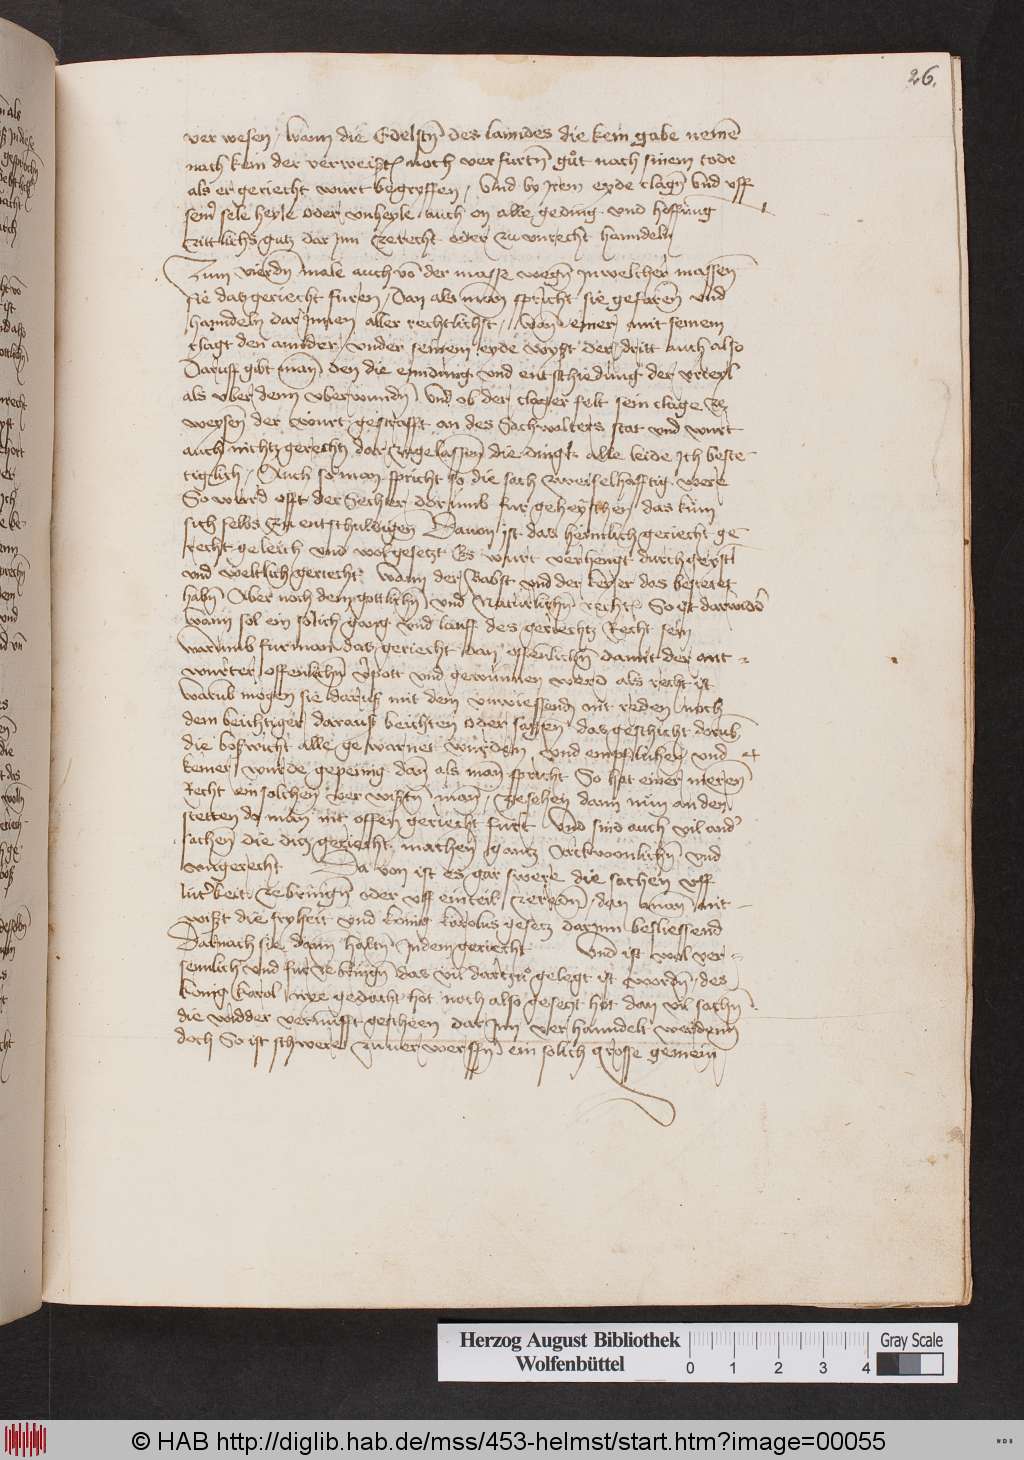 26.
ver wesen / wann die Edelstn̄ des lanndes die kein gabe nemē
nach kein der verweißt noch verfurtn̄ gůt nach sinem tode
als er geriecht wurt begryffen / Vnd by irem eyde clagn̄ vnd vff
sein̄ sele heyle oder vnheyle auch on alle geding vnd hoffūng
zittlichs gutz dar jnn zerecht oder zu vnrecht hanndeln
Zum vierdn̄ male auch vō der masse wegn̄ jn welcher massen
sie das geriecht furen / Dan als man spricht sie gefaren vnd
hanndeln dar jnnen aller rechtlichst / wan einer mit seinem
clagt den annder vnder seinem eyde der dritt auch also
Daruff gibt man den die eyndūng vnd entschiedung der vrteyl
als vber denn vberwundn̄ Vnd ob der clager felt sein clage ze
weysen der wurt gestrafft an des Sachwalters stat vnd wurt
auch nichtz gerechtz dar zugelassen die ding alle leide Ich beste
tiglich / Auch so man spricht so die sach zweifelhafftig were
So wurd offt der Sechter dorumb fur geheyschen das kum
sich selbs zu entschuldigen Dauon ist das heimlich geriecht ge
recht geleich vnd wol gesetzt Es wurt verhengt durch geystl
vnd weltlich geriecht wann der Babst vnd der keyser das bestetet
habn̄ Aber noch dem gottlichn̄ vnd Naturlichn̄ recht So ist darwidd̄
Wann sol ein solich gang vnd lauff des geriechtz Recht sein
warumb furman das geriecht dan offenlichn̄ damit der ant
wurter offenlichn̄ spott vnd gewunnen werd als recht ist
warūb mogen sie daruß mit dem vnwissendn̄ nit reden noch
dem beichtiger darauß beichten oder sagen das geschicht dorūb
die boßwicht alle gewarnet wurden vnd empfliehen vnd
keiner wurde gepeinig dan als man spricht So hat einer meren
Recht ein solchen verwißtn̄ man / zesehen dann nun an den
stetten do man nit offen geriecht furt Vnd sind auch vil and̄
sachen die ditz geriecht machen gantz arckwonlichn̄ vnd
vngerecht Da von ist es gar swere die sachen vff
lutt̄keit zebringn̄ oder vff ein teil zeredn̄ dan man nit
wißt die fryheit vnd konig karolus gesetz darinn besliessend
Darnach sie dann haltn̄ jn dem geriecht Vnd ist wol ver
senlich vnd fur ze bringn̄ das vil dartzů gelegt ist wordn̄ des
konig karol nye gedacht hot noch also gesetzt hot dan vil sachn̄
die widder vernufft gescheen dar jnn verhanndelt werdenn
doch So ist schwere zu verwerffn̄ ein solich grosse gemein
Herzog August Bibliothek
Wolfenbüttel
0 1 2 3 4
Gray Scale
© HAB http://diglib.hab.de/mss/453-helmst/start.htm?image=00055